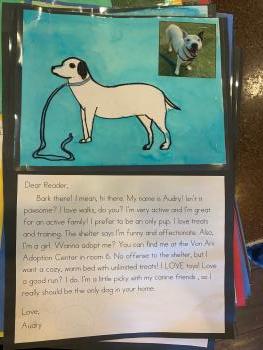 Dear Reader,
Bark there! I mean, hi there. My name is Audry! Isn't a
pawsome? I love walks, do you? I'm very active and I'm great
for an active family! I prefer to be an only pup. I love treats
and training. The shelter says I'm funny and affectionate. Also,
I'm a girl. Wanna adopt me? You can find me at the Van Ars
Adoption Center in room 6. No offense to the shelter, but I
want a cozy, warm bed with unlimited treats! I LOVE toys! Love
a good run? I do. I'm a little picky with my canine friends, so I
really should be the only dog in your home.
Love,
Audry